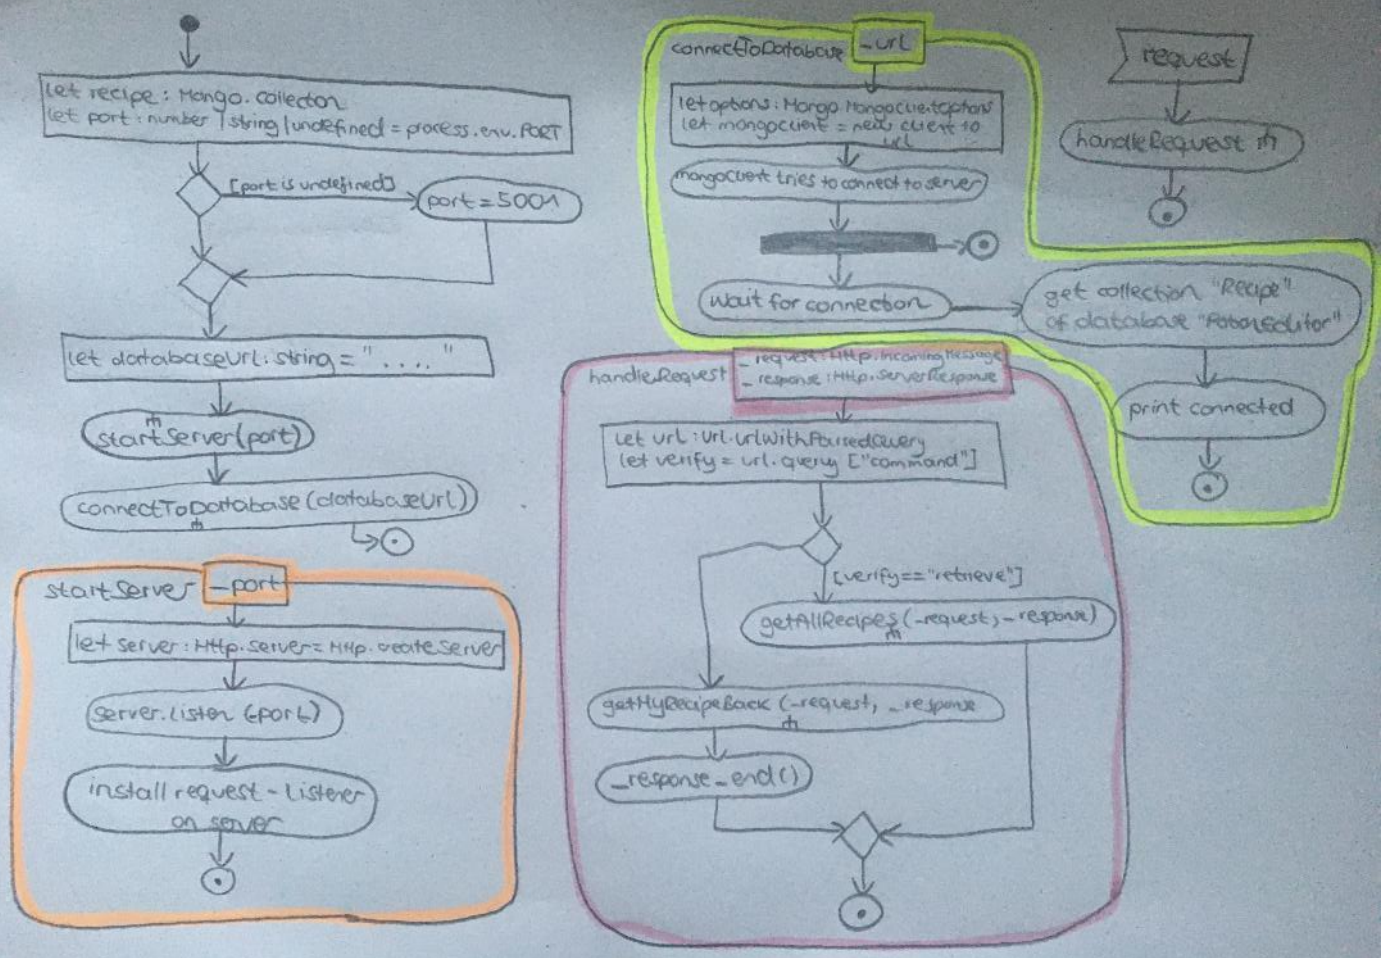 let recipe: Mongo.collection
let port: number | string | undefined = process.env.PORT
[port is undefined]
port = 5001
let databaseUrl: string = " .... "
startServer(port)
connectToDatabase (databaseUrl)
startServer
_port
let server: Http.Server = Http.createServer
server.listen (_port)
install request-listener
on server
connectToDatabase
_url
let options: Mongo.MongoClientOptions
let mongoclient = new client to
url
mongoclient tries to connect to server
wait for connection
get collection "Recipe"
of database "PotionEditor"
print connected
request
handleRequest
handleRequest
_request: Http.IncomingMessage
_response: Http.ServerResponse
let url: Url.UrlWithParsedQuery
let verify = url.query ["command"]
[verify=="retrieve"]
getAllRecipes (_request, _response)
getMyRecipeBack (_request, _response
_response_end()